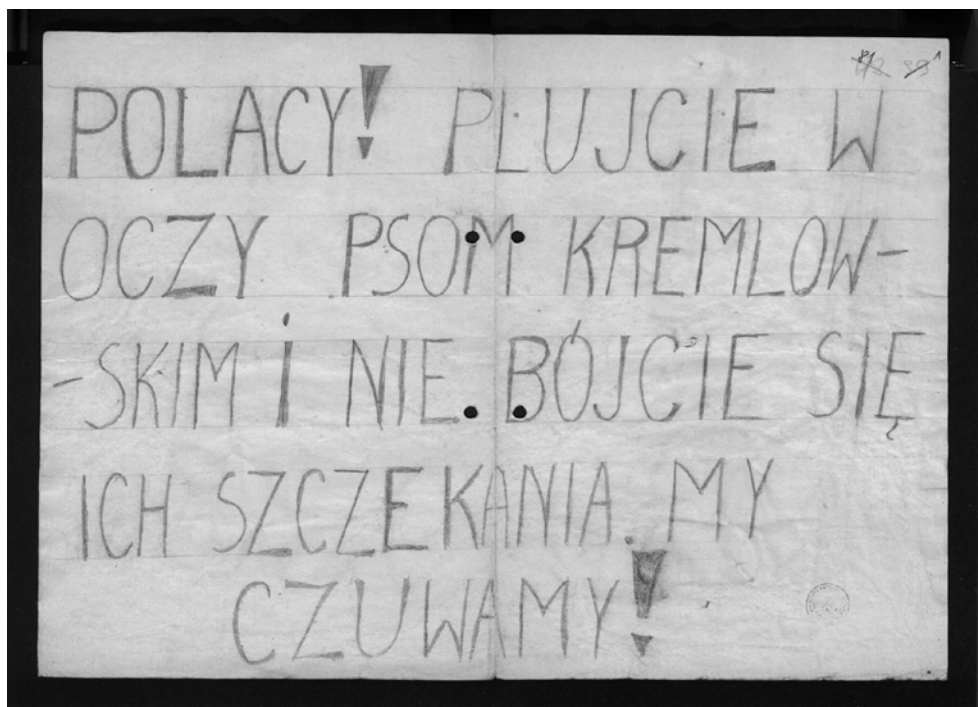 POLACY! PLUJCIE W
OCZY PSOM KREMLOW-
-SKIM I NIE BÓJCIE SIĘ
ICH SZCZEKANIA. MY
CZUWAMY!